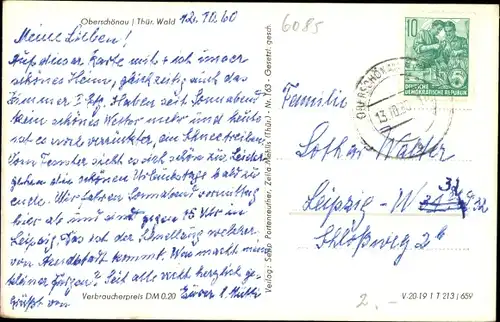 Oberschönau / Thür. Wald
12.10.60
6085
Meine Lieben!
Auf dieser Karte mit + ist unser
schönes Heim, gleichzeitig auch das
Zimmer Haben seit Sonnabend
kein schönes Wetter mehr und heute
ist es noch verrückter, ein Schneetreiben.
Vom Fenster sieht es sich schön zu. Leider
gehen die schönen Urlaubstage bald zu
ende. Wir fahren Sonnabend vormittag
hier ab und sind gegen 15 Uhr in
Leipzig. Das ist der Schnellzug welcher
von kommt. Was macht mein
kleiner Jürgen? Seid alle recht herzlich ge-
grüßt von
Verbraucherpreis DM 0.20
Verlag: Sepp Fortenreuther, Zella-Mehlis (Thür.) - Nr. 163 - Gesetzl. gesch.
10
DEUTSCHE
DEMOKRATISCHE REPUBLIK
OBERSCHÖNAU
13.10.60
Familie
Lothar Walter
Leipzig-W 32
Schlößweg 2b
2.-
V-20-19 1 T 213 / 659